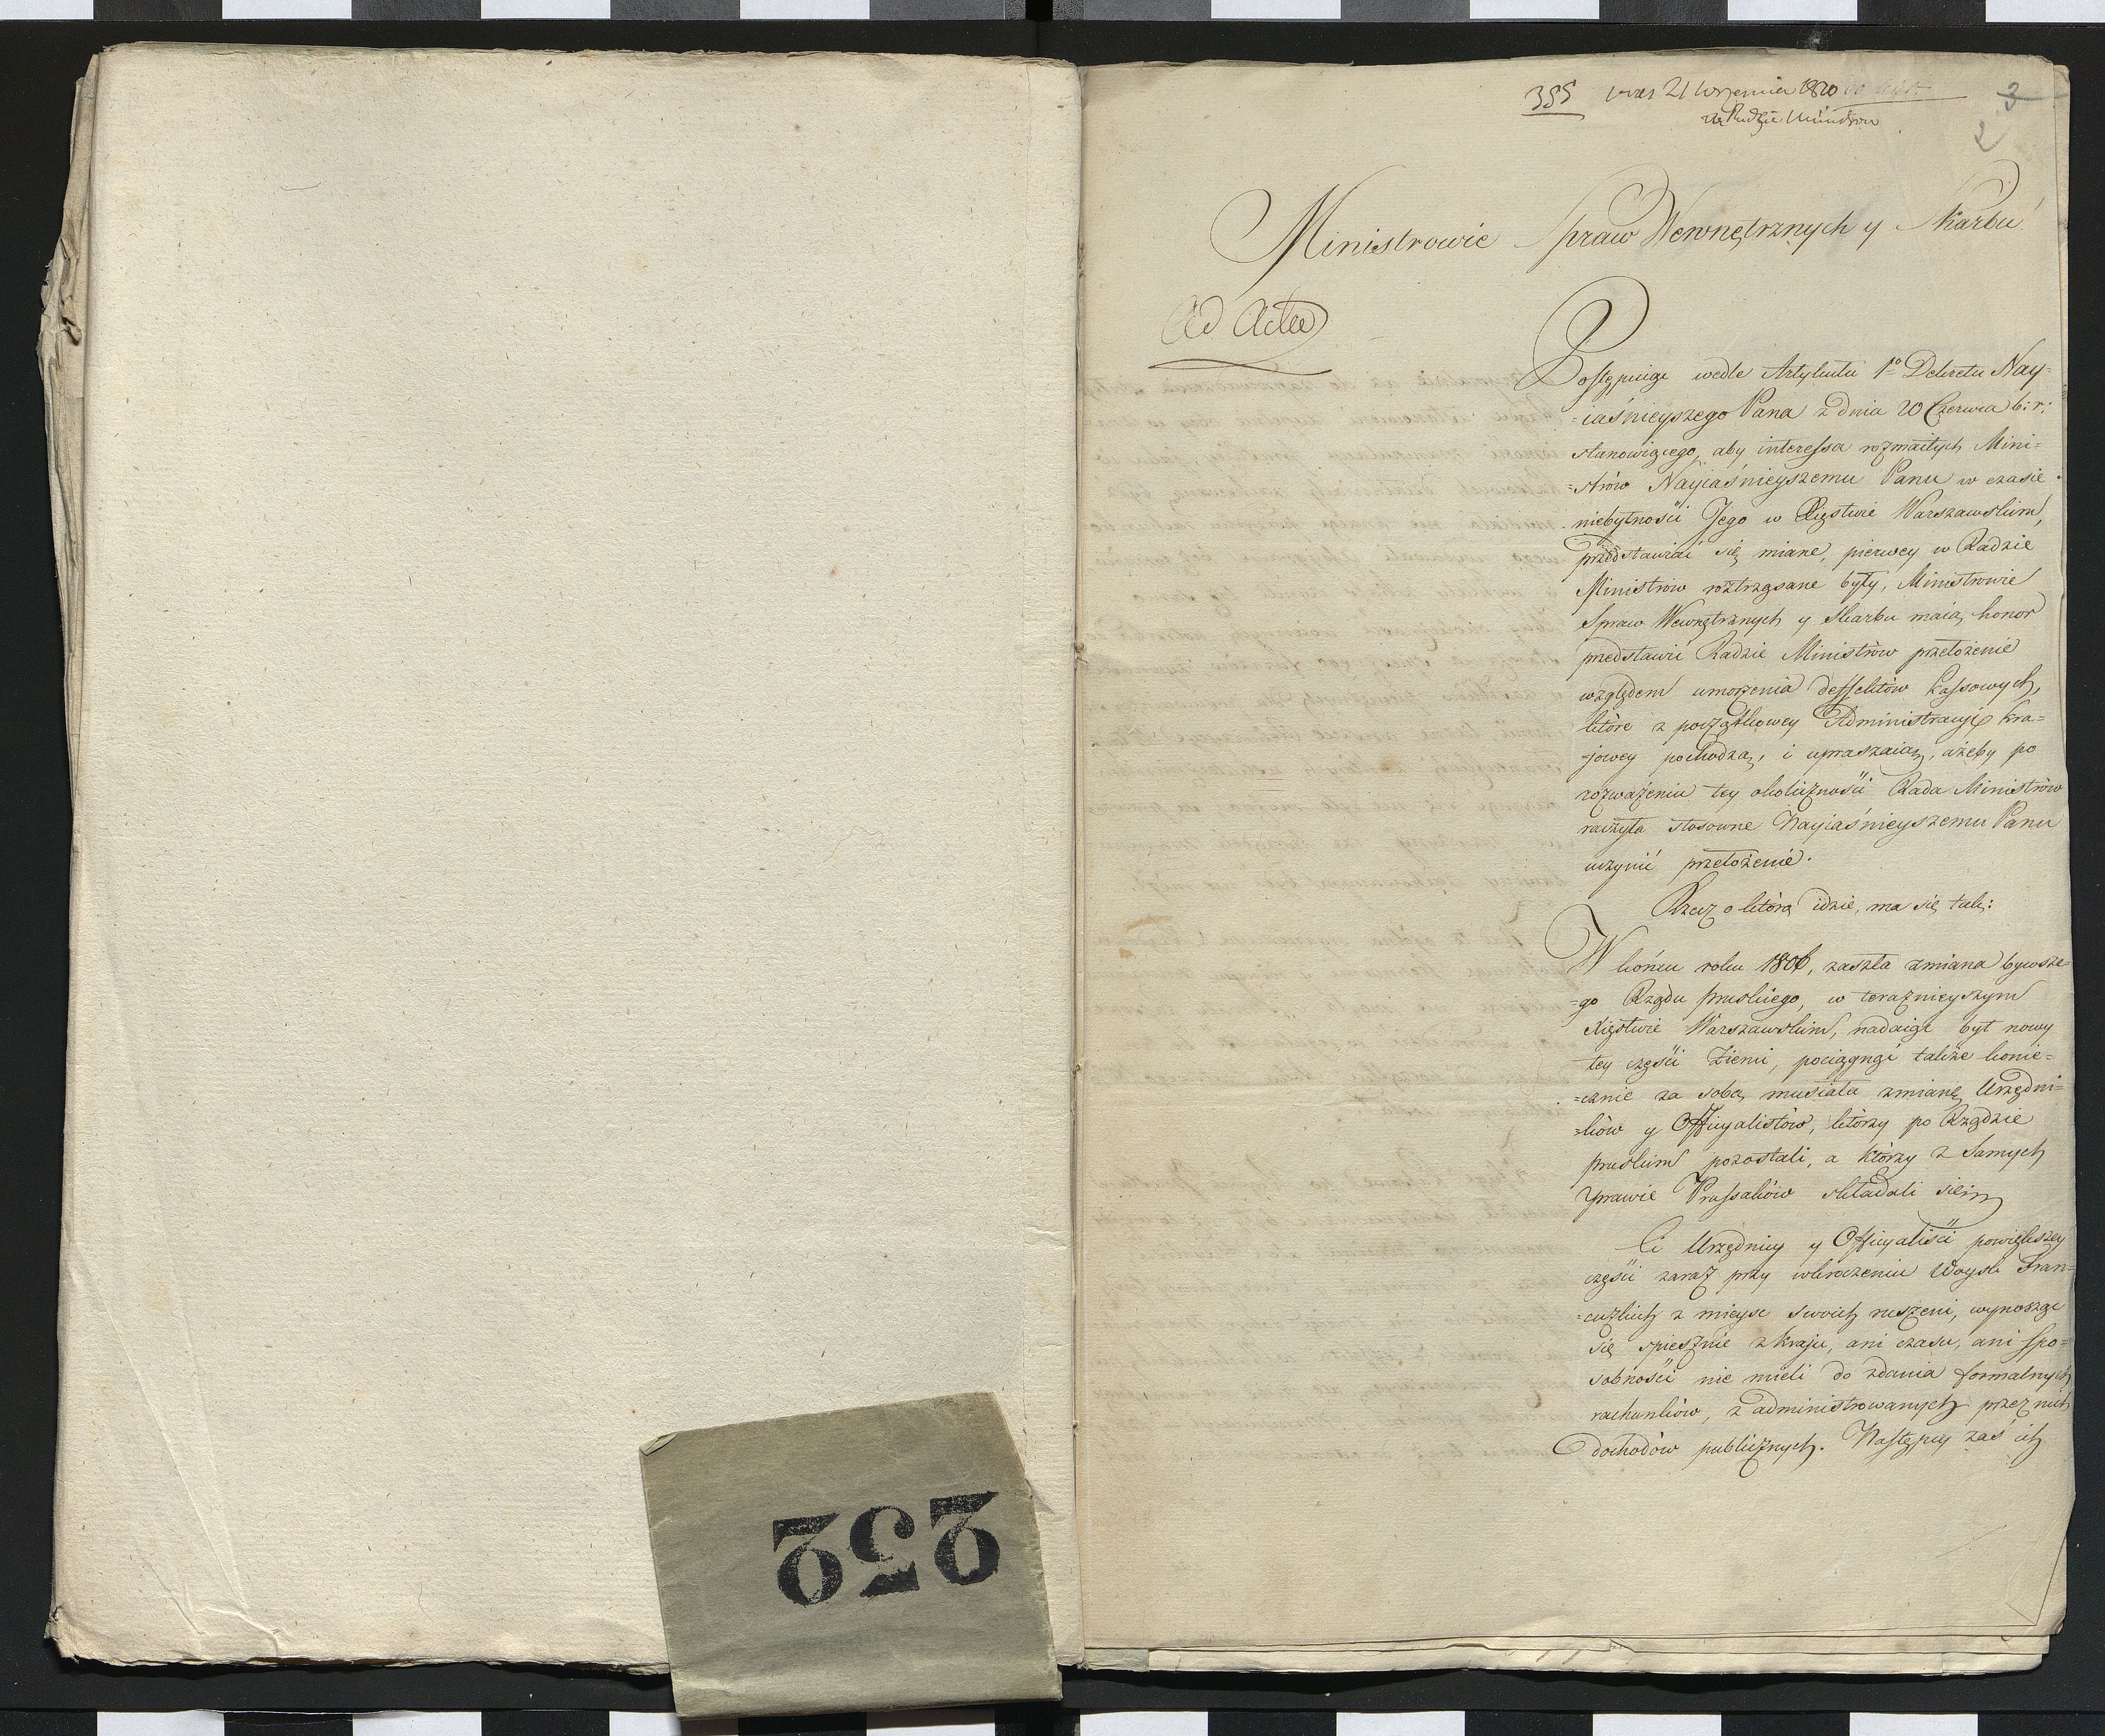 355 21 Września 1810
w Radzie Ministrow
3
2
Ministrowie Spraw Wewnętrznych y Skarbu
Ad Acta
Postępuiąc wedle Artykułu 1º Dekretu Nay=
=iaśnieyszego Pana z dnia 20 Czerwca b: r:
stanowiącego, aby interessa rozmaitych Mini=
=strów Nayiaśnieyszemu Panu w czasie
niebytności Jego w Xięstwie Warszawskim,
przedstawiać się miane, pierwey w Radzie
Ministrow roztrząsane były, Ministrowie
Spraw Wewnętrznych y Skarbu maią honor
przedstawić Radzie Ministrów przełożenie
względem umorzenia deffektów Kassowych,
które z początkowey Administracyi Kra=
=jowey pochodzą, i upraszaią, ażeby po
rozważeniu tey okoliczności Rada Ministrów
raczyła stosowne Nayiaśnieyszemu Panu
uczynić przełożenie.
Rzecz o którą idzie, ma się tak:
W końcu roku 1806, zaszła zmiana bywsze=
=go Rządu pruskiego, w teraznieyszym
Xięstwie Warszawskim, nadaiąc byt nowy
tey części Ziemi, pociągnąć także konie=
=cznie za sobą musiała zmianę Urzędni=
=ków y Officyalistów, którzy po Rządzie
pruskim pozostali, a którzy z Samych
prawie Prussaków składali się.
Ci Urzędnicy y Officyaliści powiększey
części zaraz przy wkroczeniu Woysk Fran=
=cuzkich z mieysc swoich ruszeni, wynosząc
się spiesznie z kraju, ani czasu, ani spo=
sobności nie mieli do zdania formalnych
rachunków, z administrowanych przez nich
dochodów publicznych. Następcy zaś ich
252